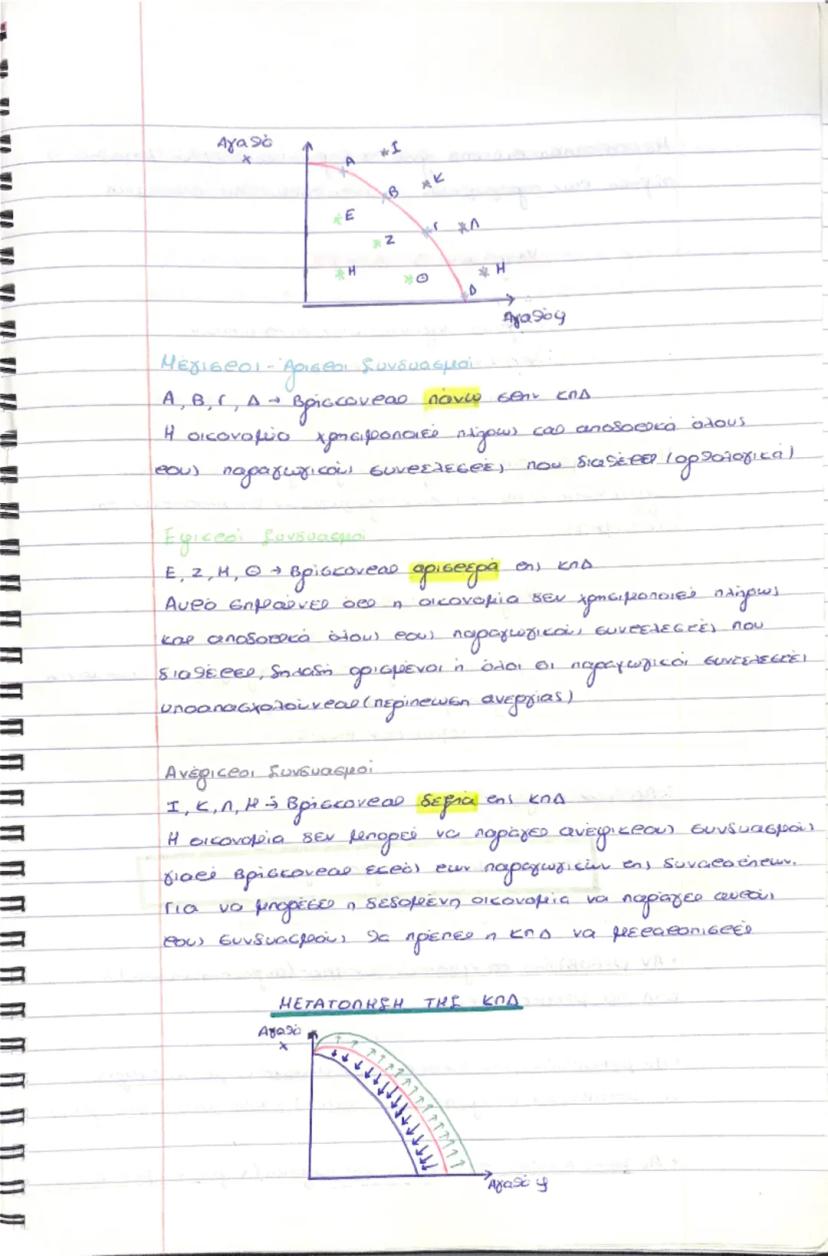 Αγαθό
x
A
I
B
K
E
Γ
Λ
Z
H
Θ
H
Δ
Αγαθό ψ
Μέγιστοι - Άριστοι Συνδυασμοί
Α, Β, Γ, Δ → Βρίσκονται πάνω στην ΚΠΔ
Η οικονομία χρησιμοποιεί πλήρως και αποδοτικά όλους
τους παραγωγικούς συντελεστές που διαθέτει (ορθολογικά)
Εφικτοί Συνδυασμοί
Ε, Ζ, Η, Θ → Βρίσκονται αριστερά της ΚΠΔ
Αυτό σημαίνει ότι η οικονομία δεν χρησιμοποιεί πλήρως
και αποδοτικά όλους τους παραγωγικούς συντελεστές που
διαθέτει, δηλαδή ορισμένοι ή όλοι οι παραγωγικοί συντελεστές
υποαπασχολούνται (περίπτωση ανεργίας)
Ανέφικτοι Συνδυασμοί
Ι, Κ, Λ, Η → Βρίσκονται δεξιά της ΚΠΔ
Η οικονομία δεν μπορεί να παράγει ανέφικτους συνδυασμούς
γιατί βρίσκονται εκτός των παραγωγικών της δυνατοτήτων.
Για να μπορέσει η δεδομένη οικονομία να παράγει αυτούς
τους συνδυασμούς θα πρέπει η ΚΠΔ να μετατοπιστεί
ΜΕΤΑΤΟΠΗΣΗ ΤΗΣ ΚΠΔ
Αγαθό
x
Αγαθό ψ